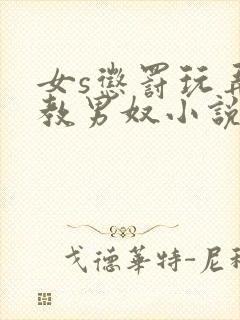 女s懲罰玩弄
教男奴小說
戈德華特-尼科